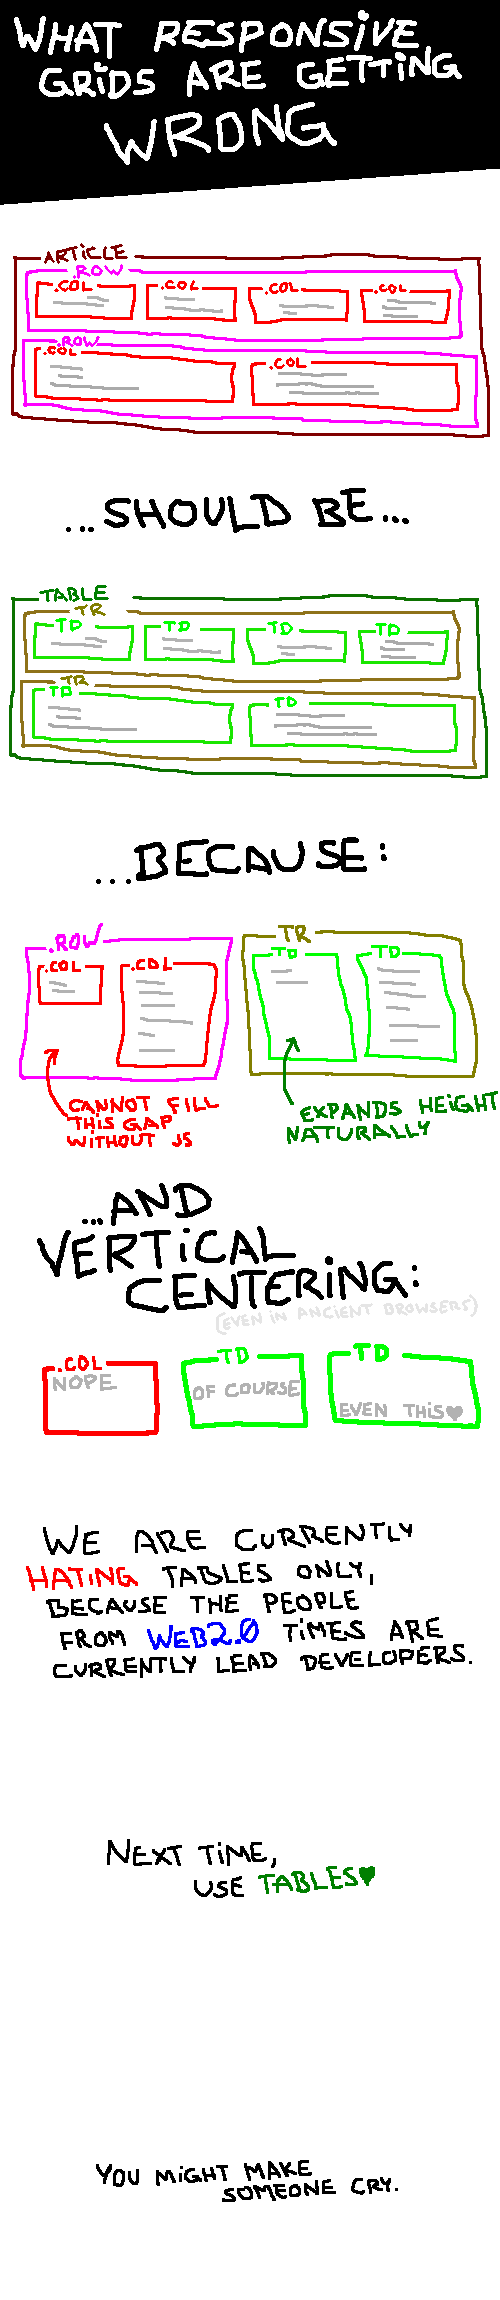 WHAT RESPONSIVE
GRiDS ARE GETTiNG
WRONG
ARTiCLE
.ROW
.COL .COL .COL .COL
.ROW
.COL .COL
...SHOULD BE...
TABLE
TR
TD TD TD TD
TR
TD TD
...BECAUSE:
.ROW TR
.COL .COL TD TD
CANNOT FILL
THiS GAP
WiTHOUT JS
EXPANDS HEiGHT
NATURALLY
...AND
VERTiCAL
CENTERiNG:
(EVEN iN ANCiENT BROWSERS)
.COL TD TD
NOPE OF COURSE EVEN THiS♥
WE ARE CURRENTLY
HATiNG TABLES ONLY,
BECAUSE THE PEOPLE
FROM WEB2.0 TiMES ARE
CURRENTLY LEAD DEVELOPERS.
NEXT TiME,
USE TABLES♥
YOU MiGHT MAKE
SOMEONE CRY.